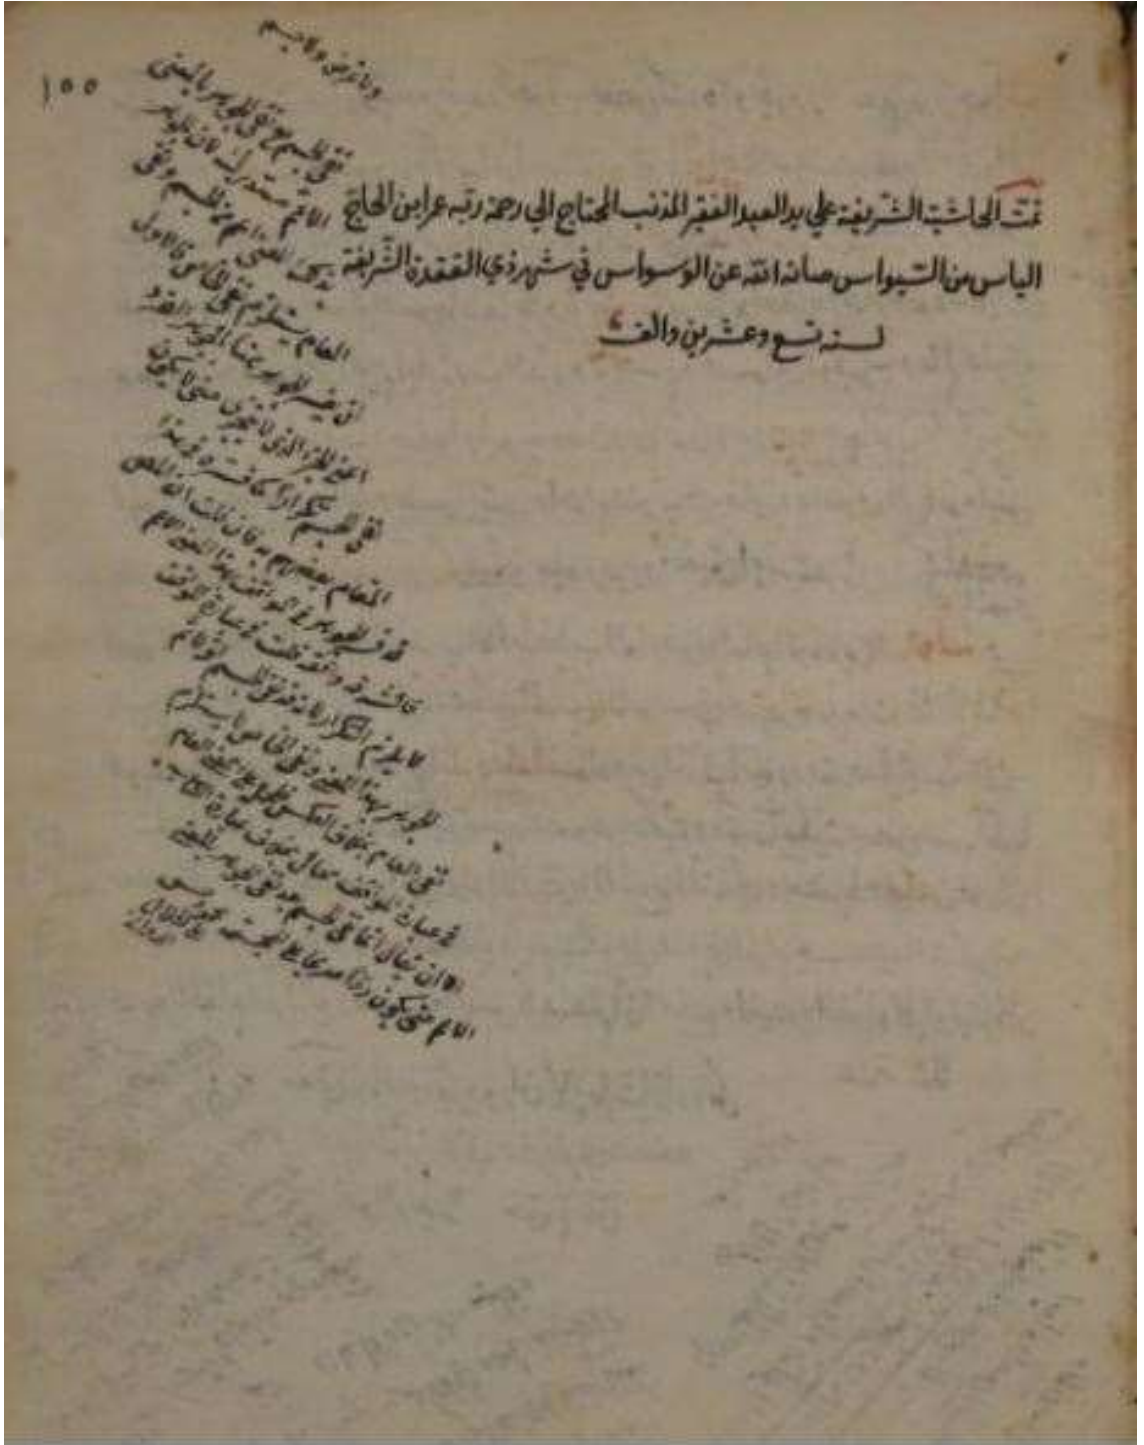 ١٥٥
ولا عرض ولا جسم
تمت الحاشية الشريفة علي يد العبد الفقير المذنب المحتاج الي رحمة ربه عمر ابن الحاج
الياس من السيواس صانه الله عن الوسواس في شهر ذي القعدة الشريفة
لسنه تسع وعشرين والف
نفي الجسم مع نفي الجوهر بالمعنى
الاعم مستدرك لان الجوهر
بهذا المعنى اعم من الجسم ونفي
العام يستلزم نفي الخاص فالاولى
ان يفسر الجوهر هنا بالجوهر الفرد
اعني الجزء الذي لا يتجزى حتى لا يكون
نفي الجسم تكرارا كما فسره في هذا
المقام بعضهم فان قلت ان
قد فسر الجوهر في المواقف بهذا المعنى الاعم
قلت في عبارة المواقف
لا يلزم التكرار لانه قدم نفي الجسم
الجوهر بهذا المعنى ونفي الخاص لا يستلزم
نفي العام بخلاف العكس
في عبارة المواقف بخلاف عبارة الكتاب
الا ان يقال انما نفي الجسم بعد نفي الجوهر بالمعنى
الاعم حتى يكون ردا صريحا على المجسمة